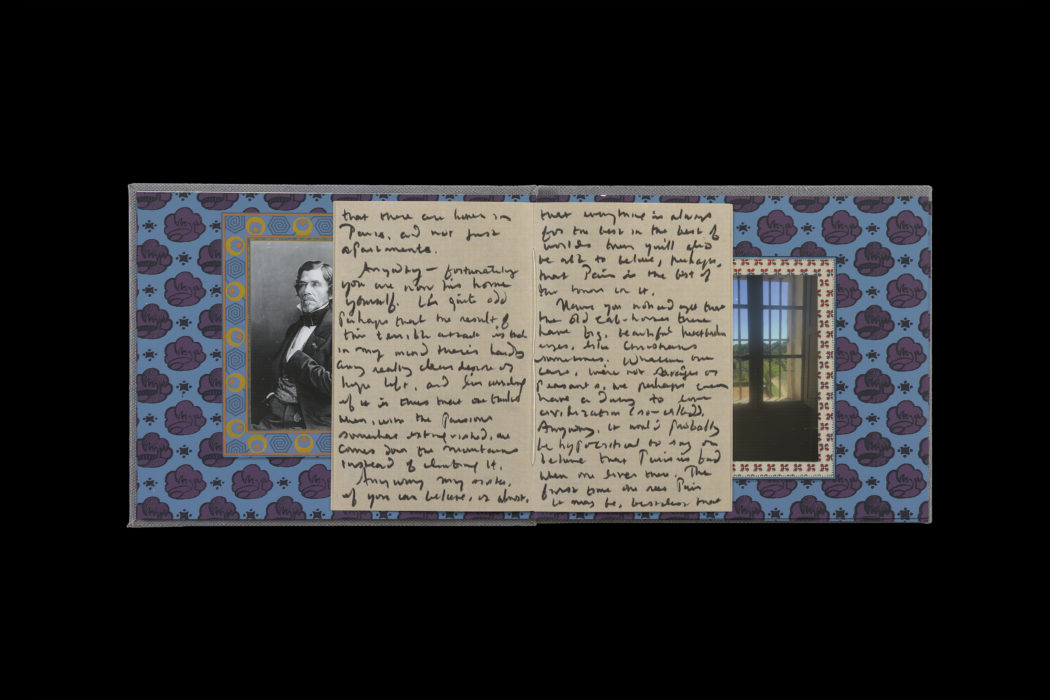 that there are horses in
Paris, and not just
apartments.
Anyway — fortunately
you are now his home
yourself. It's quite odd
perhaps that the result of
this terrible attack is that
in my mind there's hardly
any really clear desire or
hope left, and
of it is thus that one
then, with the Passions
somewhat extinguished, one
comes down the mountains
instead of climbing it.
Anyway my sister,
if you can believe, or almost,
that everything is always
for the best in the best of
worlds then you'll also
be able to believe, perhaps,
that Paris is the best of
the towns in it.
Have you noticed yet that
the old cab-horses there
have big, beautiful heartbroken
eyes, like Christians
sometimes. Whatever the
case, we're not savages or
peasants, we perhaps even
have a duty to love
civilization (so-called).
Anyway, it would probably
be hypocritical to say or
believe that Paris is bad
when one lives there. The
first time one sees Paris
it may be, besides that